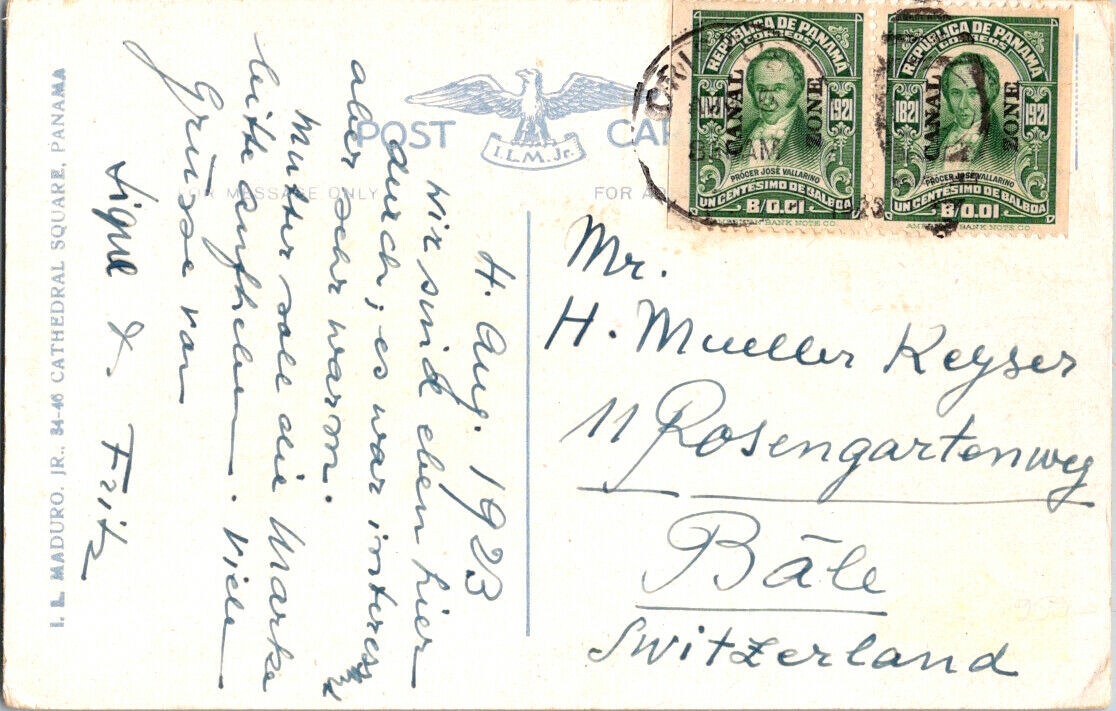 I. L. MADURO, JR., 34-46 CATHEDRAL SQUARE, PANAMA
POST CAR
I.L.M. Jr.
FOR MESSAGE ONLY
FOR A
4. Aug. 1923
wir sind eben hier
durch, es war interess
aber sehr warm.
Mutter soll die Marke
bitte aufheben. Viele
Grüsse von
Signe & Fritz
REPUBLICA DE PANAMA
CORREOS
1821 1921
CANAL ZONE
PROCER JOSÉ VALLARINO
UN CENTESIMO DE BALBOA
B/0.01
AMERICAN BANK NOTE CO.
REPUBLICA DE PANAMA
CORREOS
1821 1921
CANAL ZONE
PROCER JOSÉ VALLARINO
UN CENTESIMO DE BALBOA
B/0.01
AMERICAN BANK NOTE CO.
AM
Mr.
H. Mueller Keyser
11 Rosengartenweg
Bâle
Switzerland